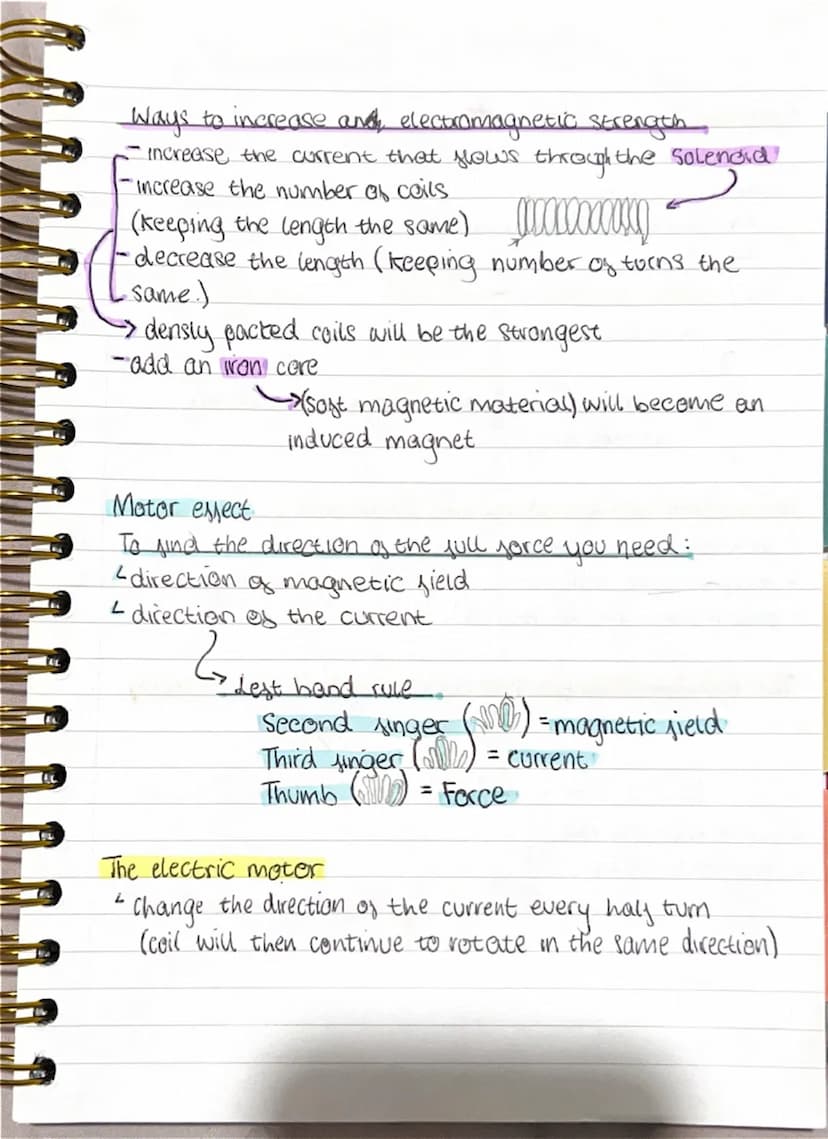 Ways to increase an electromagnetic strength
- increase the current that flows through the solenoid
- increase the number of coils
(keeping the length the same)
- decrease the length (keeping number of turns the
same.)
→ densly packed coils will be the strongest
- add an iron core
→ (soft magnetic material) will become an
induced magnet
Motor effect
To find the direction of the full force you need:
└ direction of magnetic field
└ direction of the current
→ Left hand rule
Second finger ( ) = magnetic field
Third finger ( ) = current
Thumb ( ) = Force
The electric motor
└ Change the direction of the current every half turn
(coil will then continue to rotate in the same direction)